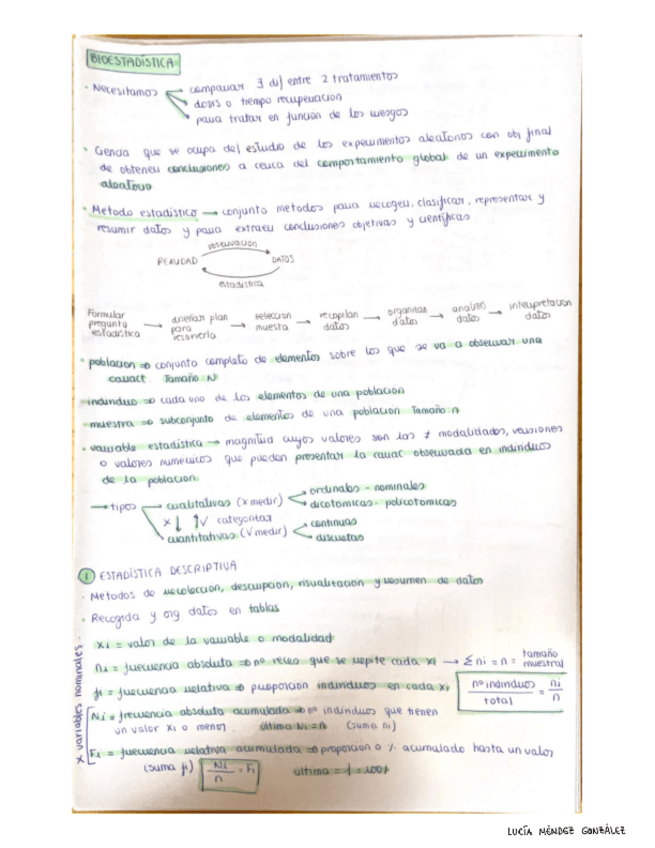 BIOESTADÍSTICA
· Necesitamos
comparar ∃ d≠ entre 2 tratamientos
dosis o tiempo recuperación
para tratar en función de los riesgos
· Ciencia que se ocupa del estudio de los experimentos aleatorios con obj final
de obtener conclusiones a cerca del comportamiento global de un experimento
aleatorio
· Metodo estadístico → conjunto metodos para recoger, clasificar, representar y
resumir datos y para extraer conclusiones objetivas y científicas
observacion
REALIDAD DATOS
estadística
Formular pregunta estadística → diseñar plan para resolverla → seleccion muestra → recopilar datos → organizar datos → analisis datos → interpretacion datos
· poblacion ⇒ conjunto completo de elementos sobre los que se va a observar una
caract. Tamaño N
· individuo ⇒ cada uno de los elementos de una poblacion
· muestra ⇒ subconjunto de elementos de una poblacion Tamaño: n
· variable estadística → magnitud cuyos valores son las ≠ modalidades, versiones
o valores numericos que pueden presentar la carac observada en individuos
de la poblacion.
→ tipos
cualitativas (x medir)
ordinales - nominales
dicotomicas - policotomicas
x↓ ↑√ categorizar
cuantitativas (√ medir)
continuas
discretas
1 ESTADÍSTICA DESCRIPTIVA
· Metodos de recoleccion, descripcion, visualitacion y resumen de datos
· Recogida y org datos en tablas
xi = valor de la variable o modalidad
ni = frecuencia absoluta ⇒ nº veces que se repite cada xi → Σ ni = n = tamaño muestral
fi = frecuencia relativa ⇒ proporcion individuos en cada xi
nº individuos / total = ni / n
x variables nominales.
Ni = frecuencia absoluta acumulada ⇒ nº individuos que tienen
un valor xi o menor. última Ni = n (suma ni)
Fi = frecuencia relativa acumulada ⇒ proporcion o % acumulado hasta un valor
(suma fi) Ni / n = Fi última = 1 = 100%
LUCÍA MÉNDEZ GONZÁLEZ